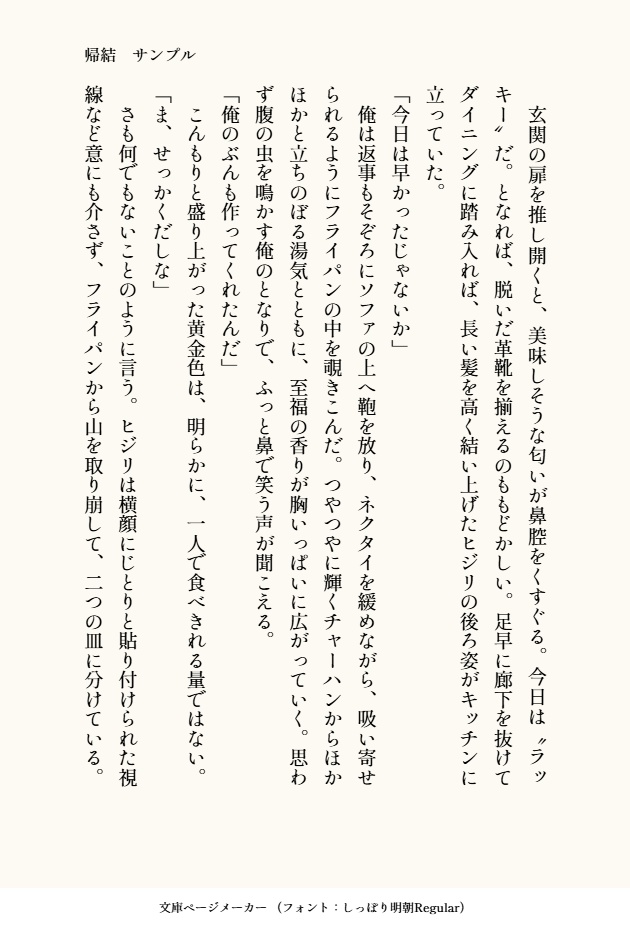 帰結　サンプル
　玄関の扉を推し開くと、美味しそうな匂いが鼻腔をくすぐる。今日は〝ラッ
キー〟だ。となれば、脱いだ革靴を揃えるのももどかしい。足早に廊下を抜けて
ダイニングに踏み入れば、長い髪を高く結い上げたヒジリの後ろ姿がキッチンに
立っていた。
「今日は早かったじゃないか」
　俺は返事もそぞろにソファの上へ鞄を放り、ネクタイを緩めながら、吸い寄せ
られるようにフライパンの中を覗きこんだ。つやつやに輝くチャーハンからほか
ほかと立ちのぼる湯気とともに、至福の香りが胸いっぱいに広がっていく。思わ
ず腹の虫を鳴かす俺のとなりで、ふっと鼻で笑う声が聞こえる。
「俺のぶんも作ってくれたんだ」
　こんもりと盛り上がった黄金色は、明らかに、一人で食べきれる量ではない。
「ま、せっかくだしな」
　さも何でもないことのように言う。ヒジリは横顔にじとりと貼り付けられた視
線など意にも介さず、フライパンから山を取り崩して、二つの皿に分けている。
文庫ページメーカー（フォント：しっぽり明朝Regular）